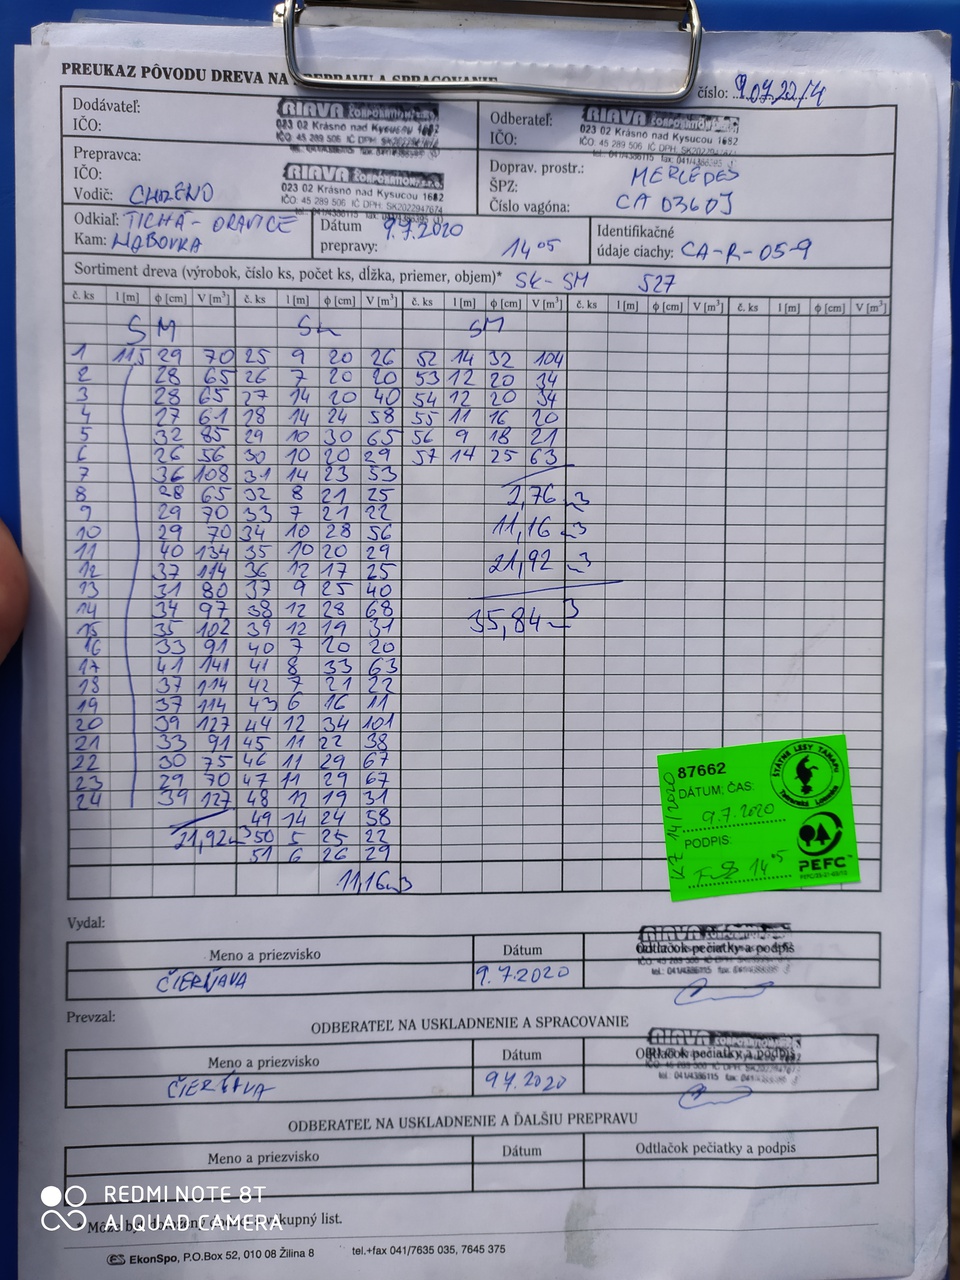 PREUKAZ PÔVODU DREVA NA PREPRAVU A SPRACOVANIE
číslo: 9.07.22/4
Dodávateľ:
IČO:
RIAVA KORPORATION s.r.o.
023 02 Krásno nad Kysucou 1682
IČO: 45 289 506 IČ DPH: SK2022947674
Odberateľ:
IČO:
RIAVA KORPORATION s.r.o.
023 02 Krásno nad Kysucou 1682
Prepravca:
IČO:
Vodič: CHOZENO
RIAVA KORPORATION s.r.o.
023 02 Krásno nad Kysucou 1682
IČO: 45 289 506 IČ DPH: SK2022947674
tel.: 041/4386115
Doprav. prostr.: MERCEDES
ŠPZ:
Číslo vagóna: CA 036DJ
Odkiaľ: TICHÁ - ORAVICE
Kam: HABOVKA
Dátum
prepravy: 9.7.2020
14 05
Identifikačné
údaje ciachy: CA-R-05-9
Sortiment dreva (výrobok, číslo ks, počet ks, dĺžka, priemer, objem)* SK-SM 527
č. ks l [m] φ [cm] V [m³] č. ks l [m] φ [cm] V [m³] č. ks l [m] φ [cm] V [m³] č. ks l [m] φ [cm] V [m³] č. ks l [m] φ [cm] V [m³]
SM SK SM
1 115 29 70 25 9 20 26 52 14 32 104
2 28 65 26 7 20 20 53 12 20 34
3 28 65 27 14 20 40 54 12 20 34
4 27 61 28 14 24 58 55 11 16 20
5 32 85 29 10 30 65 56 9 18 21
6 26 56 30 10 20 29 57 14 25 63
7 36 108 31 14 23 53
8 28 65 32 8 21 25 2,76 m3
9 29 70 33 7 21 22
10 29 70 34 10 28 56 11,16 m3
11 40 134 35 10 20 29
12 37 114 36 12 17 25 21,92 m3
13 31 80 37 9 25 40
14 34 97 38 12 28 68
15 35 102 39 12 19 31 35,84 m3
16 33 91 40 7 20 20
17 41 141 41 8 33 63
18 37 114 42 7 21 22
19 37 114 43 6 16 11
20 39 127 44 12 34 101
21 33 91 45 11 22 38
22 30 75 46 11 29 67
23 29 70 47 11 29 67
24 39 127 48 12 19 31
49 14 24 58
21,92 m3 50 5 25 22
51 6 26 29
11,16 m3
87662
DÁTUM, ČAS:
9.7.2020
PODPIS:
14 05
K7 14/2020
ŠTÁTNE LESY TANAPU
Tatranská Lomnica
PEFC™
Vydal:
Meno a priezvisko Dátum Odtlačok pečiatky a podpis
ČIERŇAVA 9.7.2020
RIAVA KORPORATION s.r.o.
Prevzal:
ODBERATEĽ NA USKLADNENIE A SPRACOVANIE
Meno a priezvisko Dátum Odtlačok pečiatky a podpis
ČIERŇAVA 9.7.2020
RIAVA KORPORATION s.r.o.
ODBERATEĽ NA USKLADNENIE A ĎALŠIU PREPRAVU
Meno a priezvisko Dátum Odtlačok pečiatky a podpis
REDMI NOTE 8T
AI QUAD CAMERA
výkupný list.
EkonSpo, P.O.Box 52, 010 08 Žilina 8 tel.+fax 041/7635 035, 7645 375